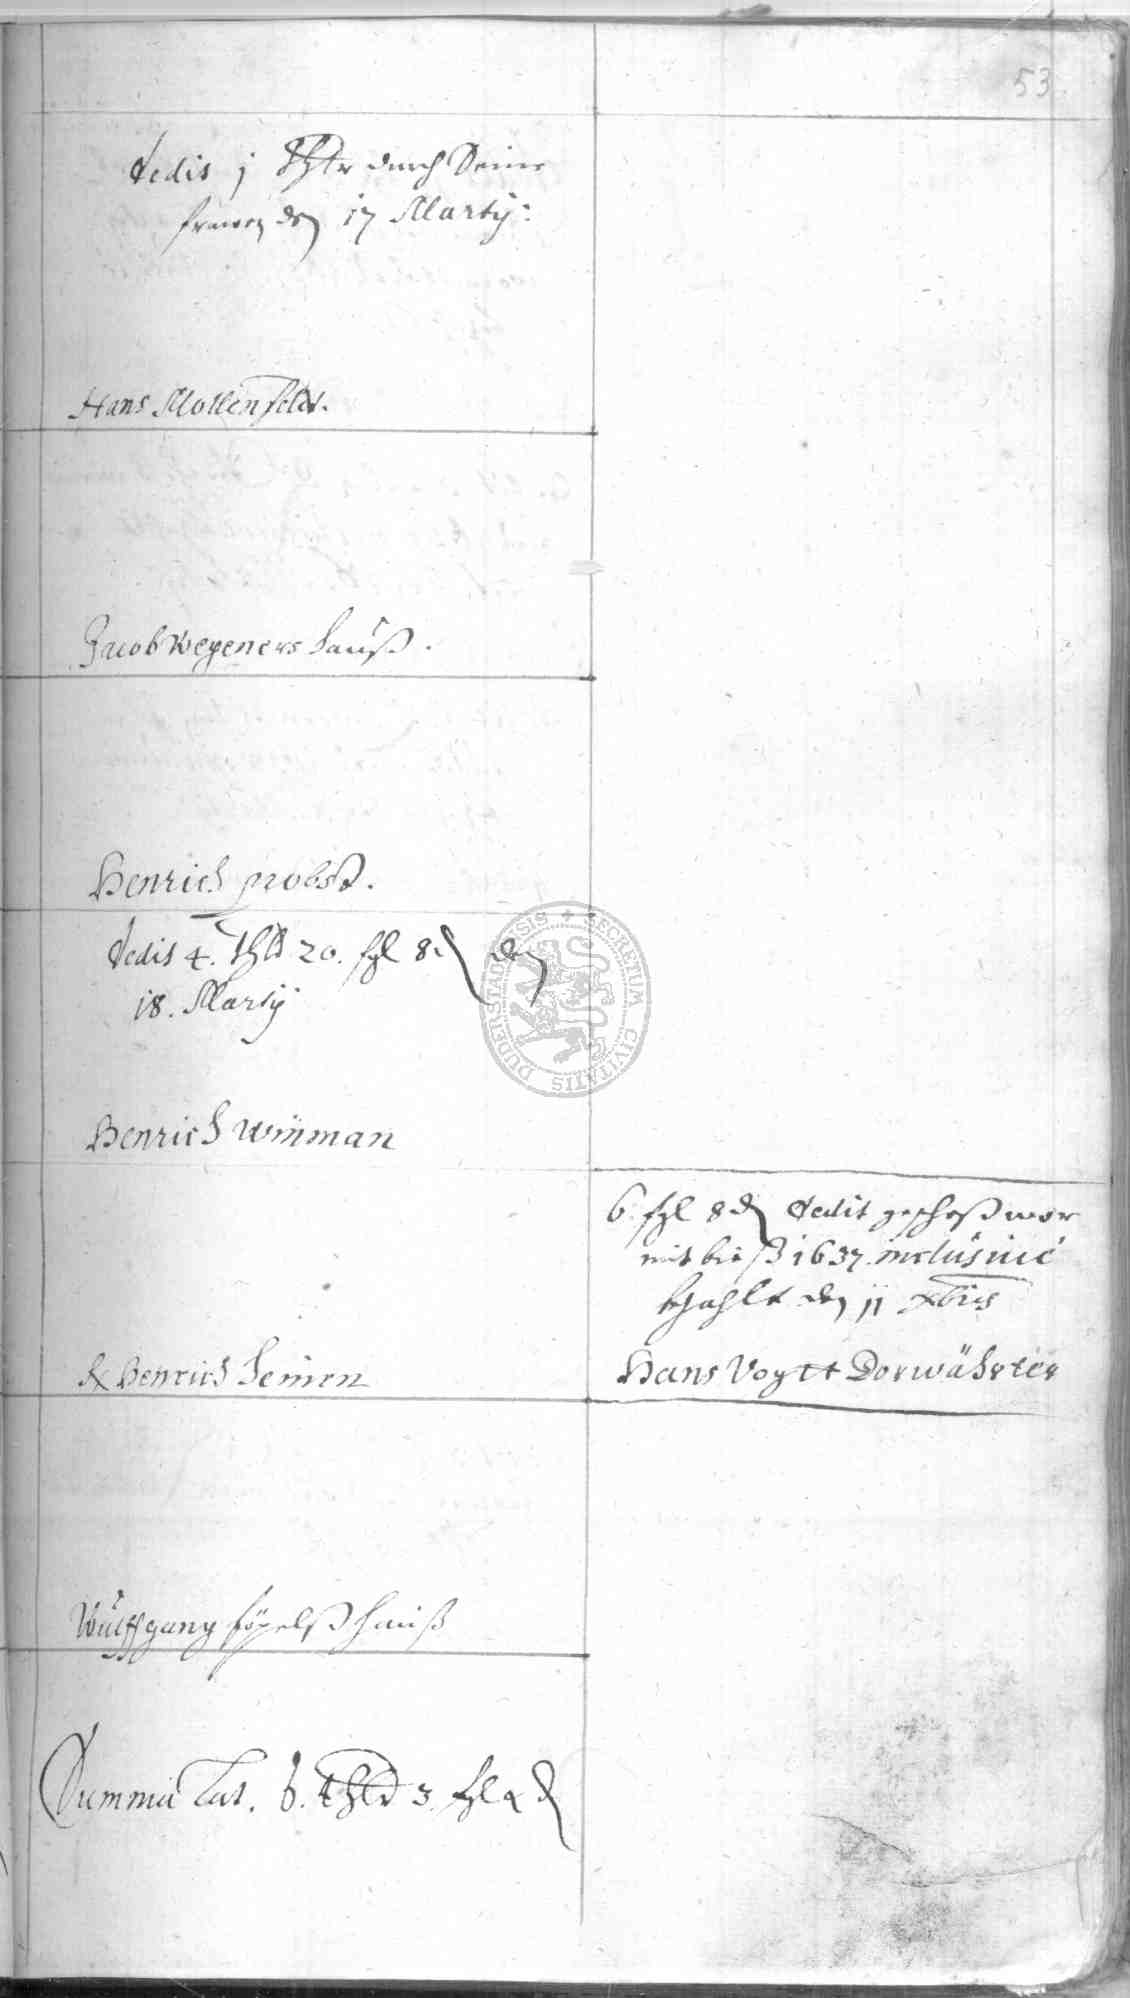 53
dedit j Thlr durch Seine
frawen den 17 Martij:
Hans Mollenfeldt.
Jacob Wegeners hauß.
Henrich probst.
dedit 4. Thlr 20. ßgl 8 ₰ den
18. Martij
Henrich Winman
Henrich heinen
6. ßgl 8 ₰ dedit geschoß wor
mit biß 1637. inclusiuè
bezahlt den 11 Xbris
Hans Vogtt Dorwährter
Wulffgang hauß
Summa Lat. 6. thlr 3. ßgl ₰
DUDERSTADENSIS SECRETUM CIVITATIS